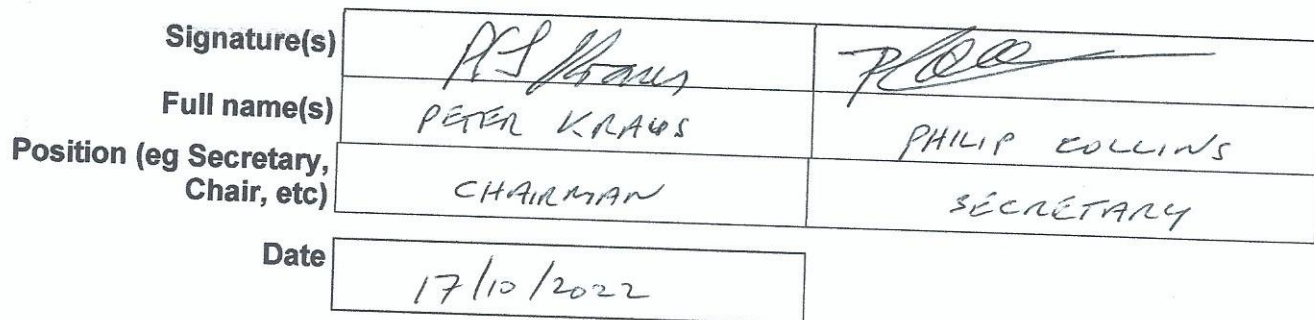 Signature(s)
Full name(s) PETER KRAUS PHILIP COLLINS
Position (eg Secretary,
Chair, etc) CHAIRMAN SECRETARY
Date 17/10/2022